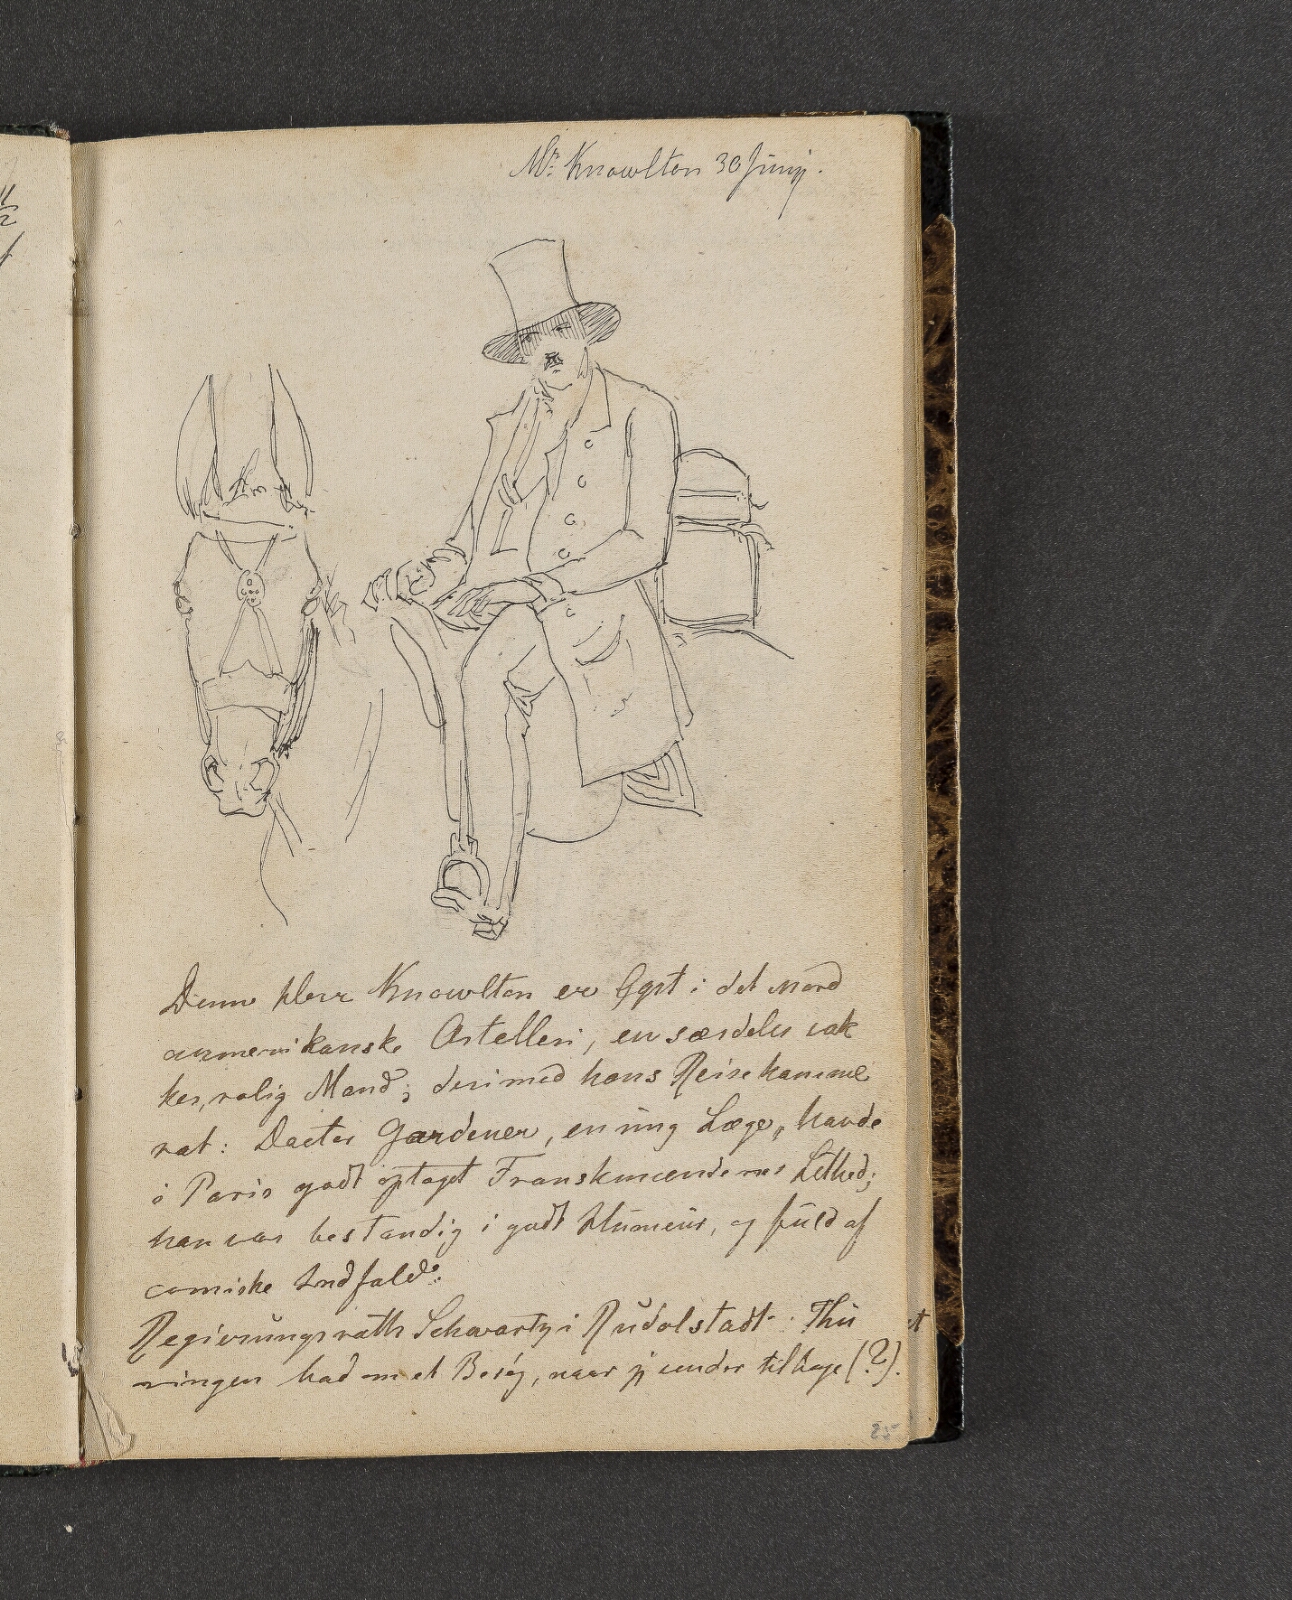 Mr Knowlton 30 Junij.
Denne Herr Knowlton er Cpt i det nord
ammerikanske Artelleri, en særdeles vak
ker, rolig Mand; derimod hans Reisekamme
rat: Doctor Gardener, en ung Læge, havde
i Paris godt optaget Franskmændenes Lethed;
han var bestandig i godt Humeur, og fuld af
comiske Indfald.
Regierungsrath Schwartz i Rudolstadt Thü
ringen bad om et Besøg, naar jeg vender tilbage (?).
25